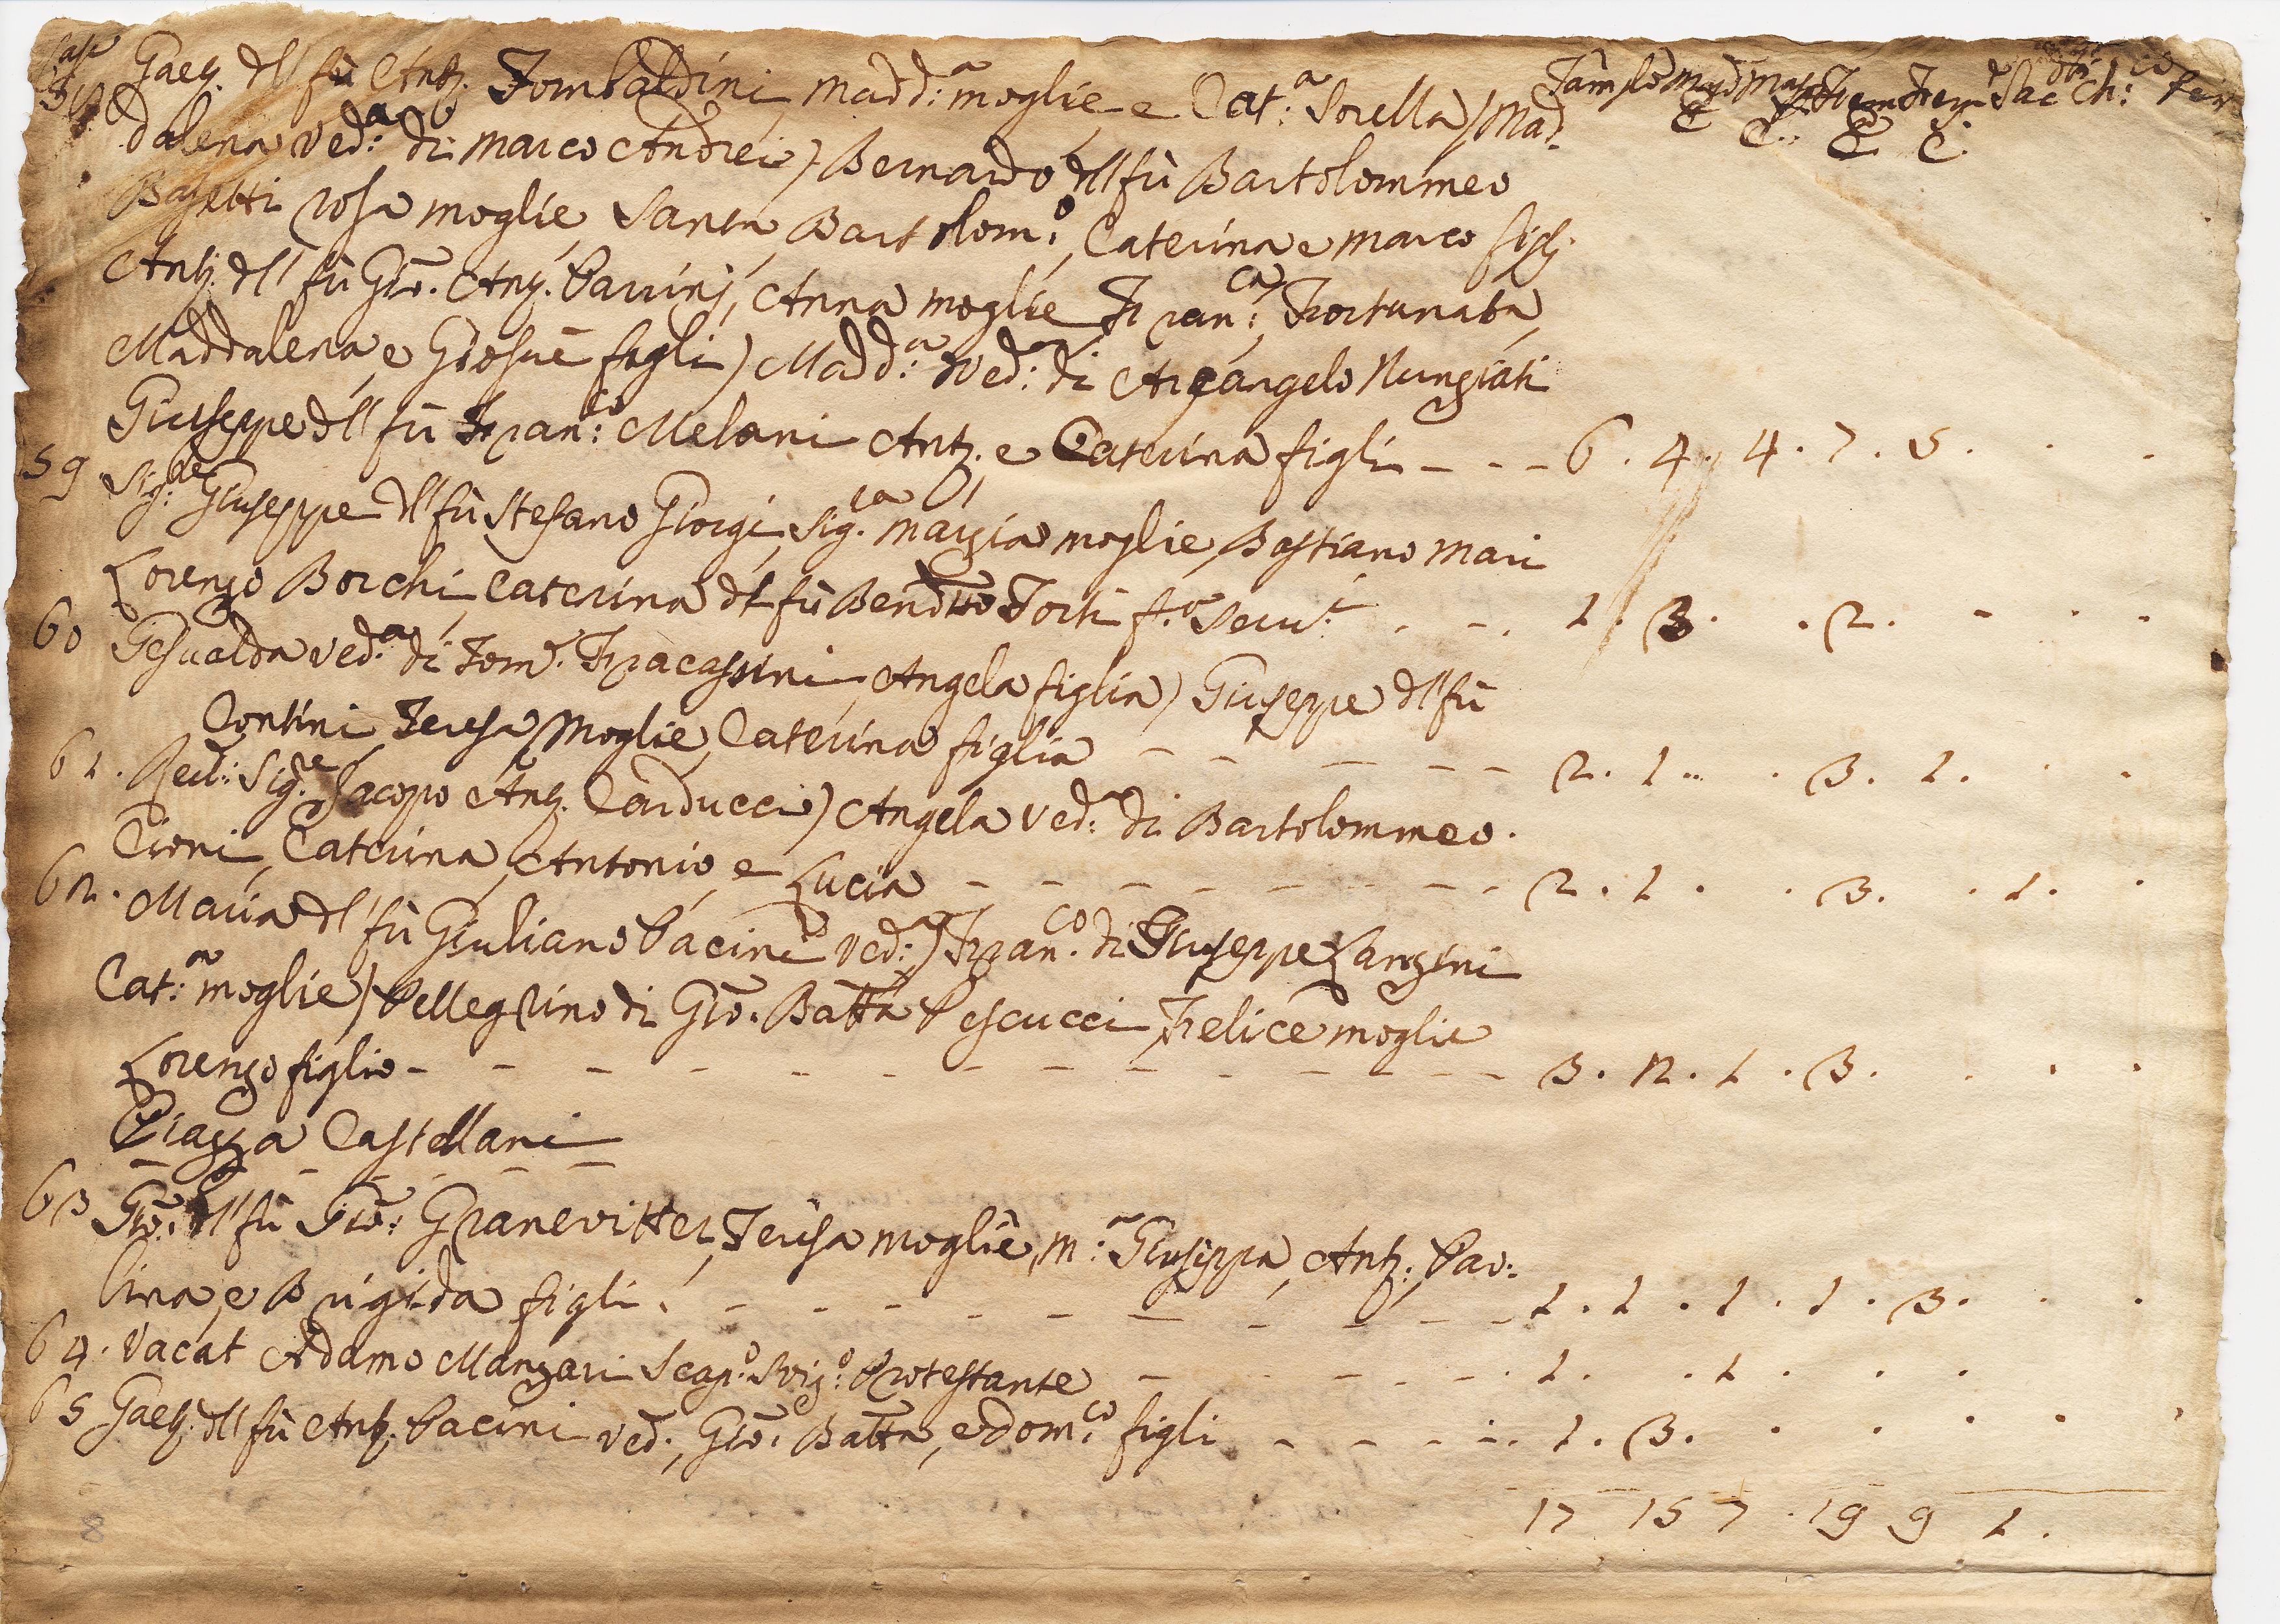 Case Gaet. dl' fù Ant. Tombaldini, Madd:a moglie, e Cat:a Sorella) Mad. Famil
58 dalena Ved:a di Marco Andrei) Bernardo dl' fù Bartolommeo C C. C. C.
Rosa moglie, Santa, Bartolom:o, Caterina e Marco figli
Ant. dl' fù Gio. Ant. Parrini, Anna moglie Fran:ca, Fortunata,
Maddalena, e Giosuè figli) Madd:a Ved:a di Arcangelo Nunziati
Giuseppe dl' fù Fran:co Melani Ant. e Caterina figli - - - 6 . 4 . 4 . 7 . 5 . . .
59 Sig:re Giuseppe dl' fù Stefano Giorgi, Sig.ra Marzia moglie, Bastiano Mari
Lorenzo Borchi, Caterina dl fù Bendtto Torti . - . 1 . 3 . . 2 . - . .
60 Gesualda Ved:a di Tom:o Fracassini, Angela figlia) Giuseppe dl' fù
Contini Teresa Moglie, Caterina figlia - - - - - 2 . 1 .. . 3 . 1 . . .
61. Red: Sig:re Jacopo Ant. Carducci) Angela Ved:a di Bartolommeo.
Cioni, Caterina, Antonio, e Lucia - - - - - - - - . 2 . 1 . . 3 . . 1 . .
62. Maria dl' fù Giuliano Pacini Ved:a) Fran.co di Giuseppe Lanzini
Cat:a moglie) Pellegrino di Gio. Batta Pescucci Felice moglie
Lorenzo figlio - - - - - - - - - - - - - 3 . 2 . 1 . 3 . . . .
Piazza Castellani
63 Gio: dl' fù Gio: Granevitter, Teresa moglie, M:a Giuseppa, Ant:, Pao:
lina, e Brigida figli . - - - - - - - - - - 1 . 1 . 1 . 1 . 3 . . .
64. Vacat Adamo Manzari Scap:o Sviz:o Protestante - - - - - - . 1 . . 1 . . .
65 Gaet. dl' fù Ant. Pacini Ved., Gio. Batta, e Dom:co figli - - - - . 1 . 3 . . . . .
17 15 7 . 19 9 1 .
8